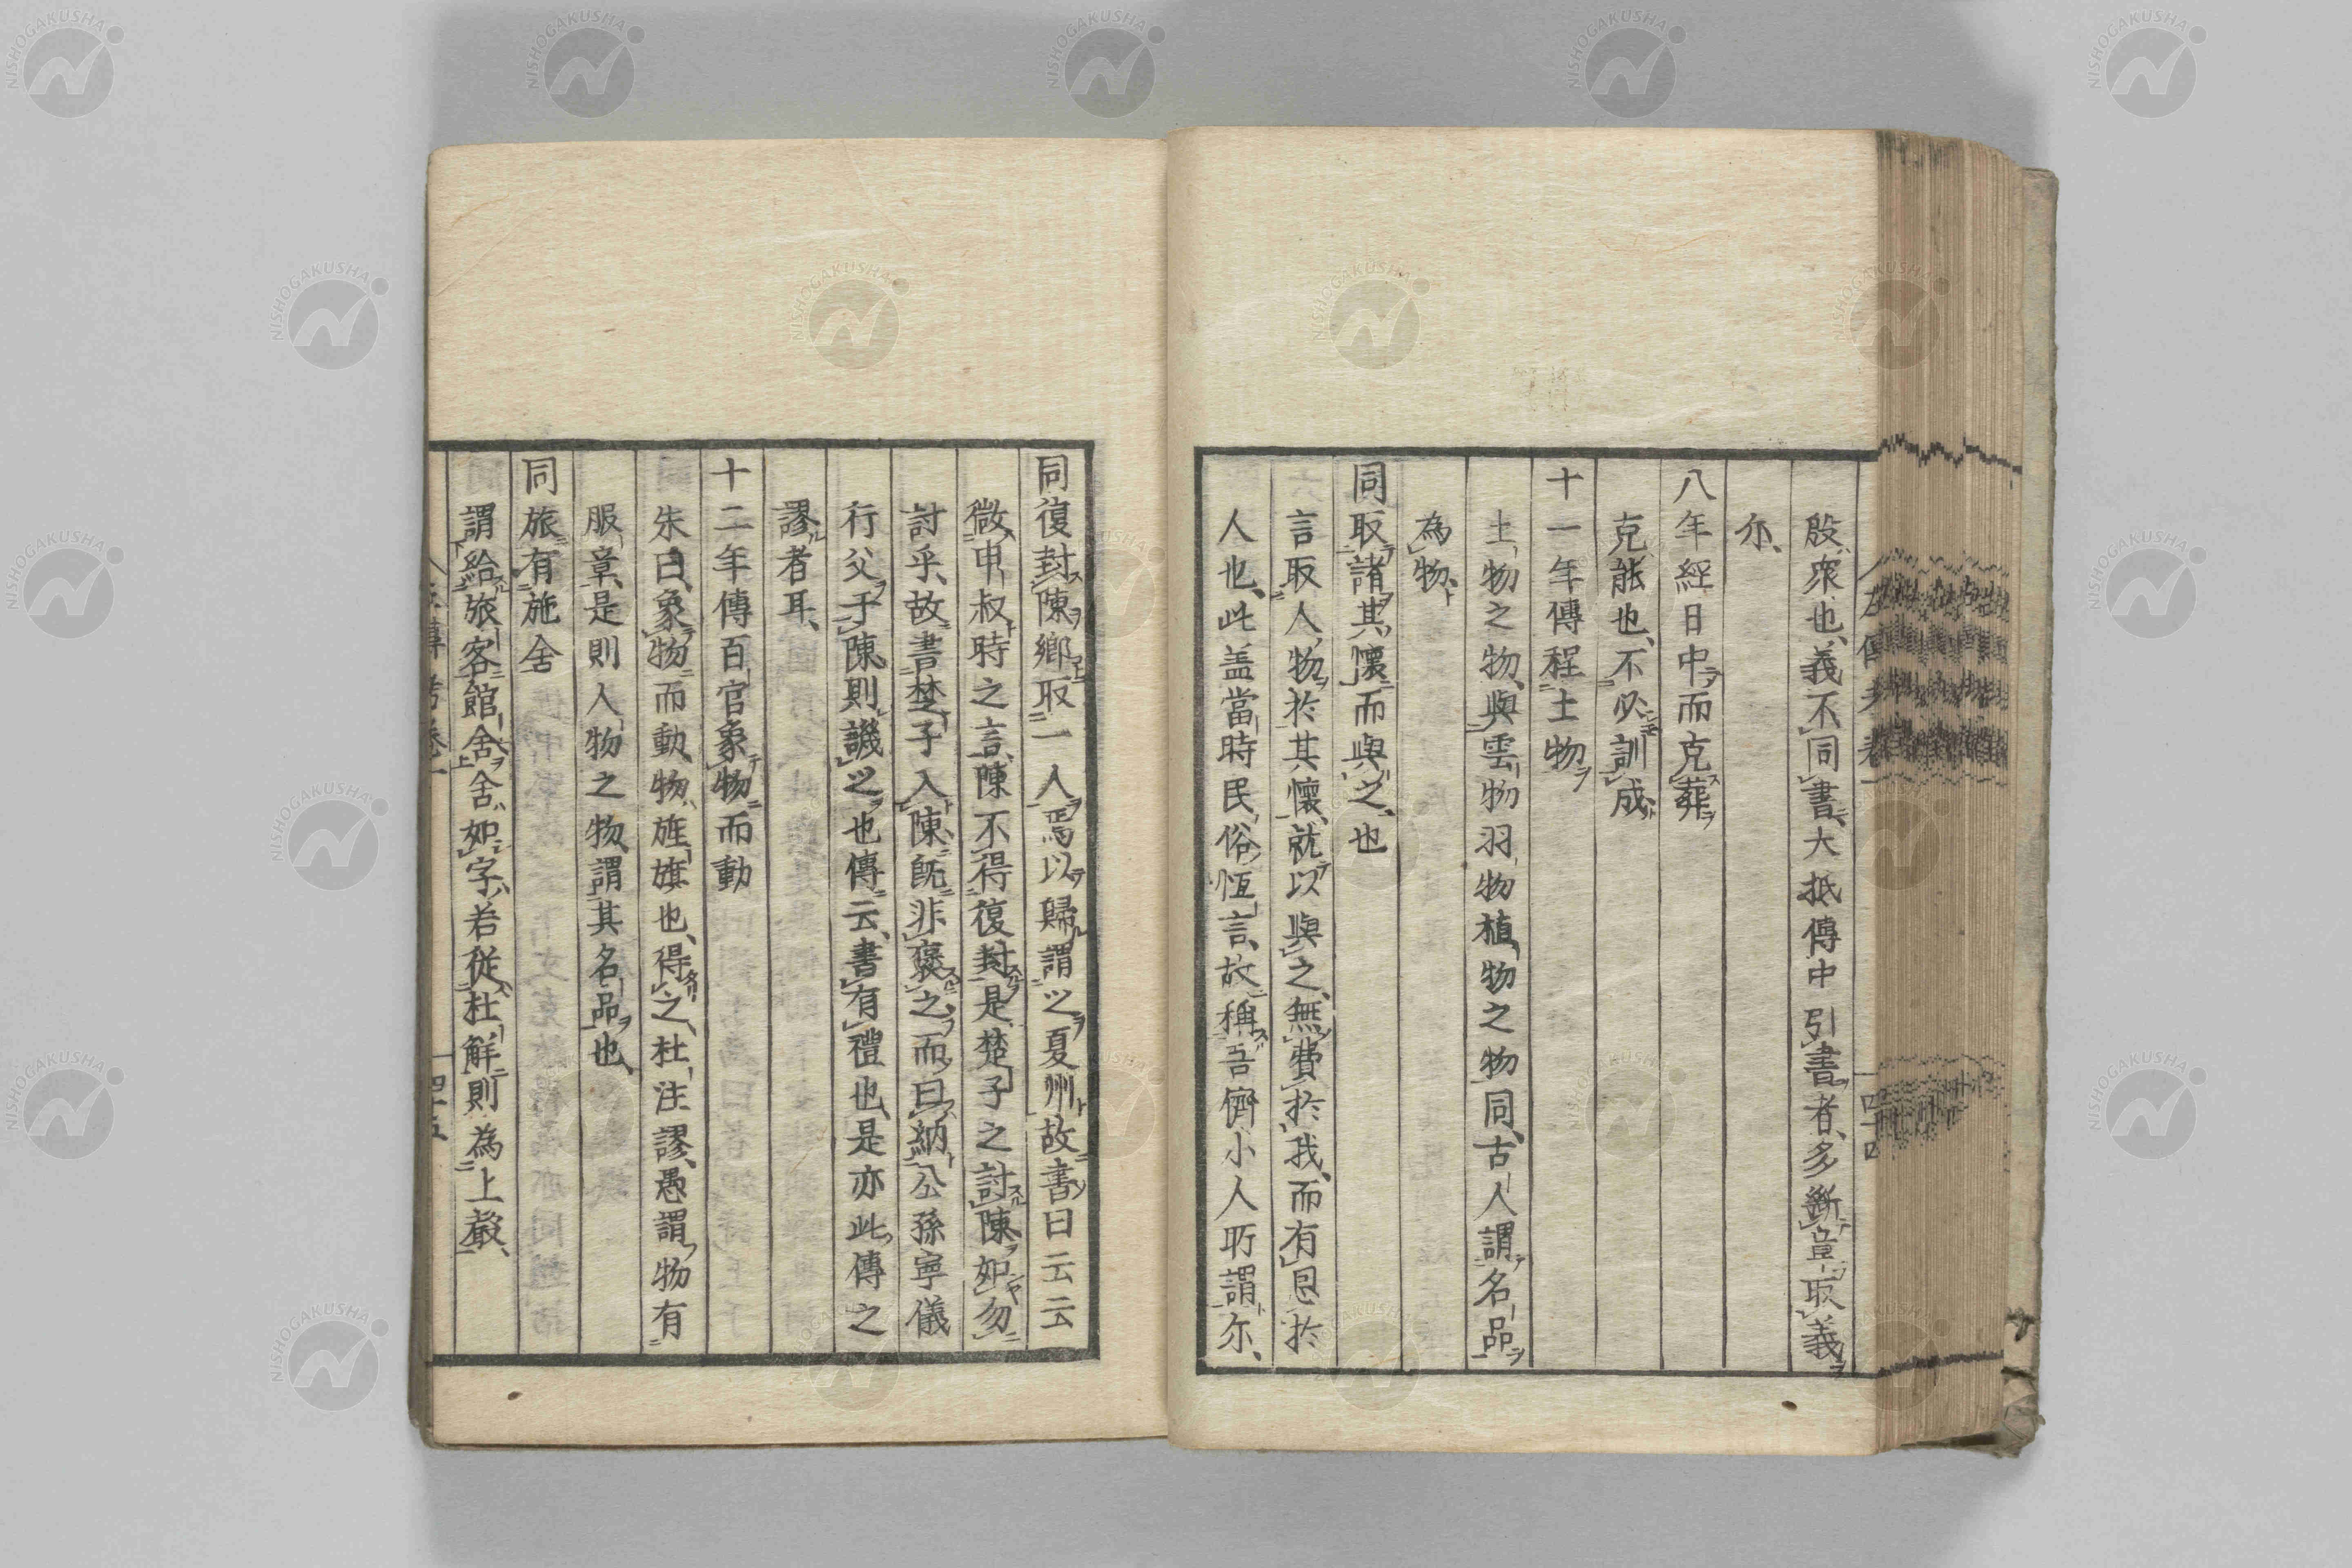 殷衆也、義不同書、大抵傳中引書者、多斷章取義
尒、
八年經日中而克葬
克能也、不必訓成
十一年傳程土物
土物之物、與雲物羽物植物之物同、古人謂名品
為物、
同取諸其懷而與之也
言取人物於其懷、就以與之、無費於我、而有恩於
人也、此盖當時民俗恆言、故稱吾儕小人所謂尒、
同復封陳鄉取一人焉以歸謂之夏州故書曰云云
微申叔時之言、陳不得復封是楚子之討陳如勿
討乎、故書楚子入陳、既非褒之、而曰納公孫寧儀
行父于陳則譏之也傳云、書有禮也、是亦此傳之
謬者耳、
十二年傳百官象物而動
朱曰、象物而動、物旌旗也、得之、杜注謬、愚謂物有
服章、是則人物之物、謂其名品也、
同旅有施舍
謂給旅客館舍舍、如字、若從杜解則為上聲、
四十五
NISHOGAKUSHA